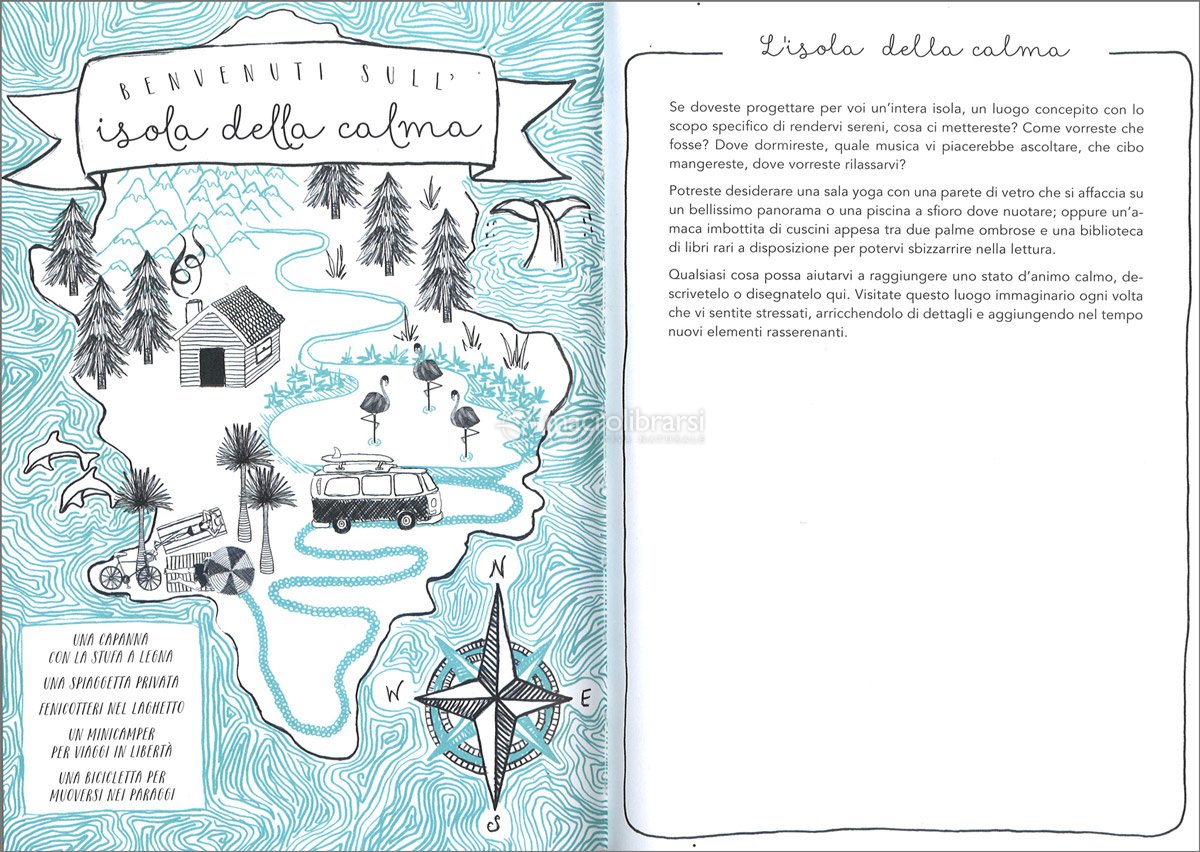 BENVENUTI SULL'
isola della calma
UNA CAPANNA
CON LA STUFA A LEGNA
UNA SPIAGGETTA PRIVATA
FENICOTTERI NEL LAGHETTO
UN MINICAMPER
PER VIAGGI IN LIBERTÀ
UNA BICICLETTA PER
MUOVERSI NEI PARAGGI
N
W
E
S
L'isola della calma
Se doveste progettare per voi un'intera isola, un luogo concepito con lo
scopo specifico di rendervi sereni, cosa ci mettereste? Come vorreste che
fosse? Dove dormireste, quale musica vi piacerebbe ascoltare, che cibo
mangereste, dove vorreste rilassarvi?
Potreste desiderare una sala yoga con una parete di vetro che si affaccia su
un bellissimo panorama o una piscina a sfioro dove nuotare; oppure un'a-
maca imbottita di cuscini appesa tra due palme ombrose e una biblioteca
di libri rari a disposizione per potervi sbizzarrire nella lettura.
Qualsiasi cosa possa aiutarvi a raggiungere uno stato d'animo calmo, de-
scrivetelo o disegnatelo qui. Visitate questo luogo immaginario ogni volta
che vi sentite stressati, arricchendolo di dettagli e aggiungendo nel tempo
nuovi elementi rasserenanti.
macrolibrarsi